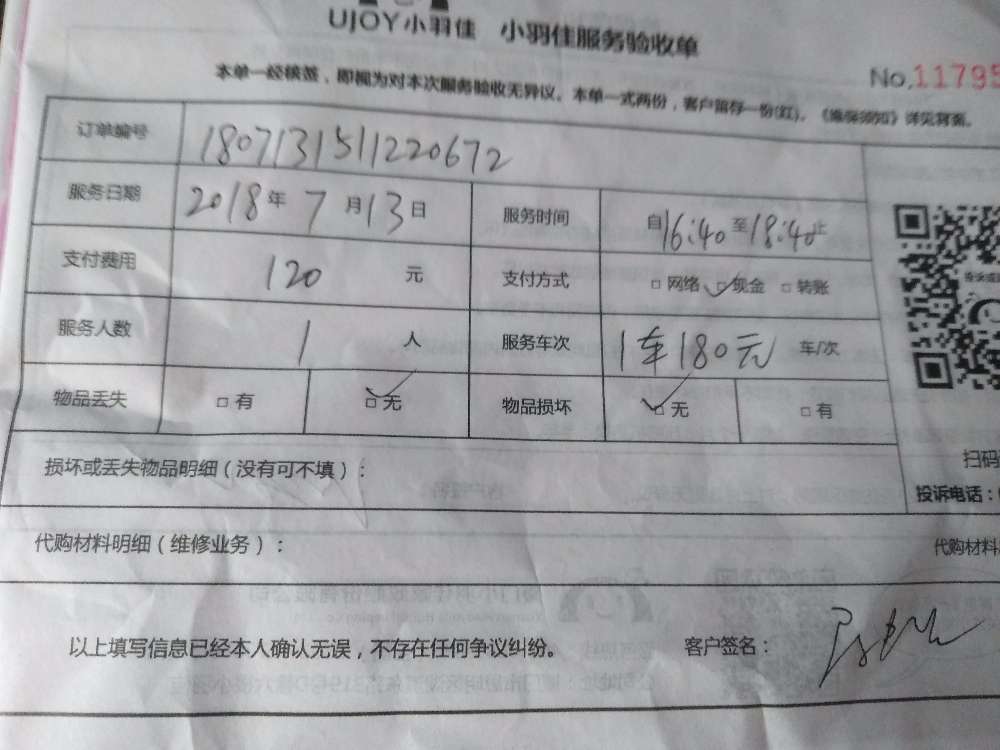 UJOY小羽佳 小羽佳服务验收单
No.11795
本单一经核签，即视为对本次服务验收无异议。本单一式两份，客户留存一份(红)。《维保须知》详见背面。
订单编号 1807131511220672
服务日期 2018年7月13日 服务时间 自16:40至18:40止
支付费用 120 元 支付方式 □网络 □现金 □转账
服务人数 1 人 服务车次 1车180元 车/次
物品丢失 □有 □无 物品损坏 □无 □有
损坏或丢失物品明细（没有可不填）：
扫码
投诉电话：
代购材料明细（维修业务）：
代购材料
以上填写信息已经本人确认无误，不存在任何争议纠纷。 客户签名：